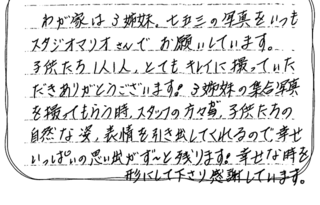 わが家は3姉妹、七五三の写真をいつも
スタジオマリオさんでお願いしています。
子供たち1人1人、とてもキレイに撮っていた
だきありがとうございます!3姉妹の集合写真
を撮ってもらう時、スタッフの方々が、子供たちの
自然な姿、表情を引き出してくれるので幸せ
いっぱいの思い出がず〜と残ります!幸せな時を
形にして下さり感謝しています。